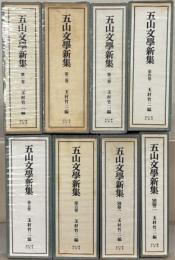 五山文學新集
第一巻
玉村竹二編
五山文學新集
第二巻
玉村竹二編
五山文學新集
第三巻
玉村竹二編
五山文學新集
第四巻
玉村竹二編
五山文學新集
第五巻
玉村竹二編
五山文學新集
第六巻
玉村竹二編
五山文學新集
別巻一
玉村竹二編
五山文學新集
別巻二
玉村竹二編